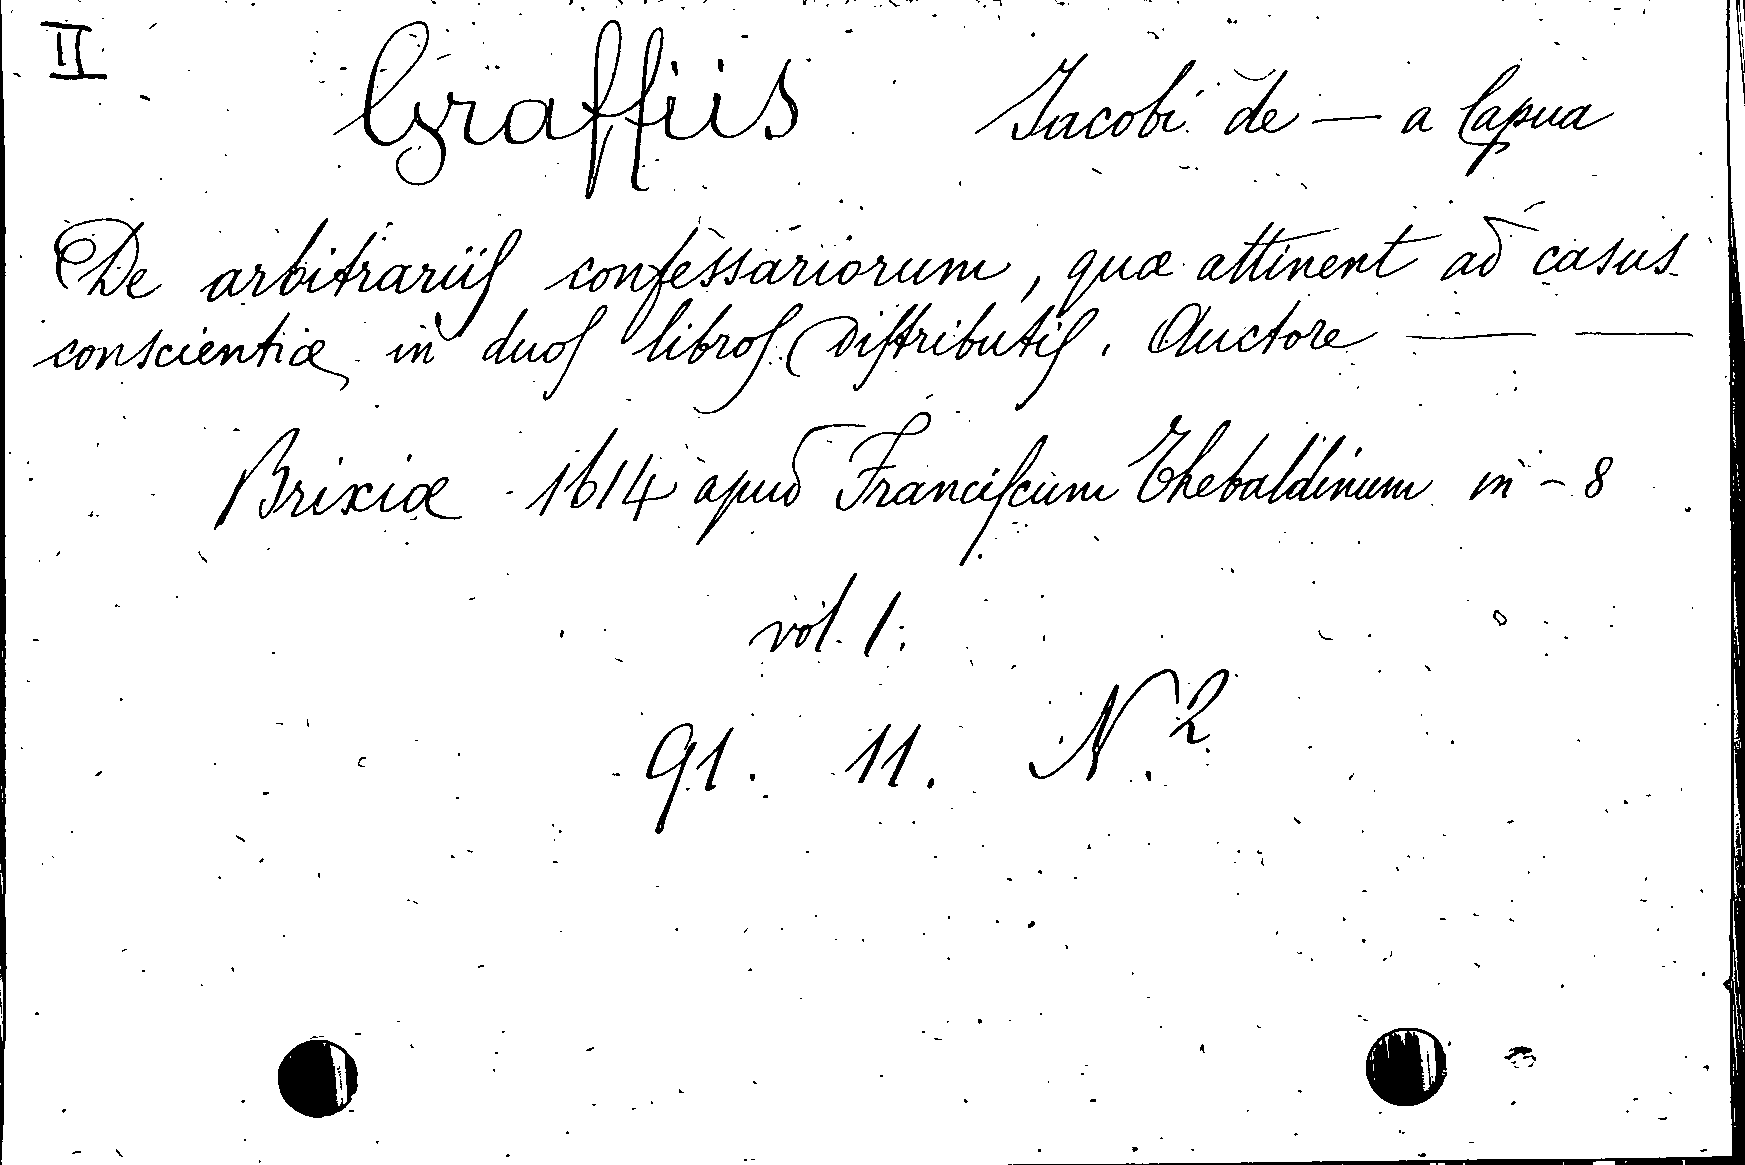 II
Graffiis Jacobi de — a Capua
De arbitrariis confessariorum, quæ attinent ad casus
conscientiæ in duos libros distributis. Auctore — —
Brixiæ 1614 apud Franciscum Thebaldinum in - 8
vol. 1.
91. 11. N.2